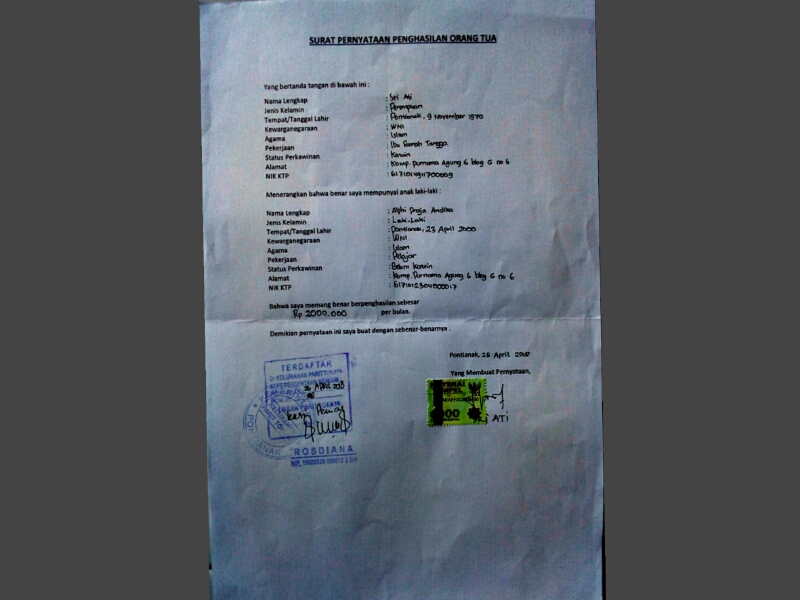 SURAT PERNYATAAN PENGHASILAN ORANG TUA
Yang bertanda tangan di bawah ini :
Nama Lengkap : Sri Ati
Jenis Kelamin : Perempuan
Tempat/Tanggal Lahir : Pontianak, 9 November 1970
Kewarganegaraan : WNI
Agama : Islam
Pekerjaan : Ibu Rumah Tangga
Status Perkawinan : Kawin
Alamat : Komp. Purnama Agung 6 blog G no 6
NIK KTP : 6171014911700009
Menerangkan bahwa benar saya mempunyai anak laki-laki :
Nama Lengkap : Alphi Andika
Jenis Kelamin : Laki-Laki
Tempat/Tanggal Lahir : Pontianak, 23 April 2000
Kewarganegaraan : WNI
Agama : Islam
Pekerjaan : Pelajar
Status Perkawinan : Belum Kawin
Alamat : Komp. Purnama Agung 6 blog G no 6
NIK KTP : 6171012304000017
Bahwa saya memang benar berpenghasilan sebesar
Rp 2000.000 per bulan.
Demikian pernyataan ini saya buat dengan sebenar-benarnya .
Pontianak, 26 April
Yang Membuat Pernyataan,
TERDAFTAR
DI KELURAHAN PARIT TOKAYA
APRIL
ROSDIANA
ATI